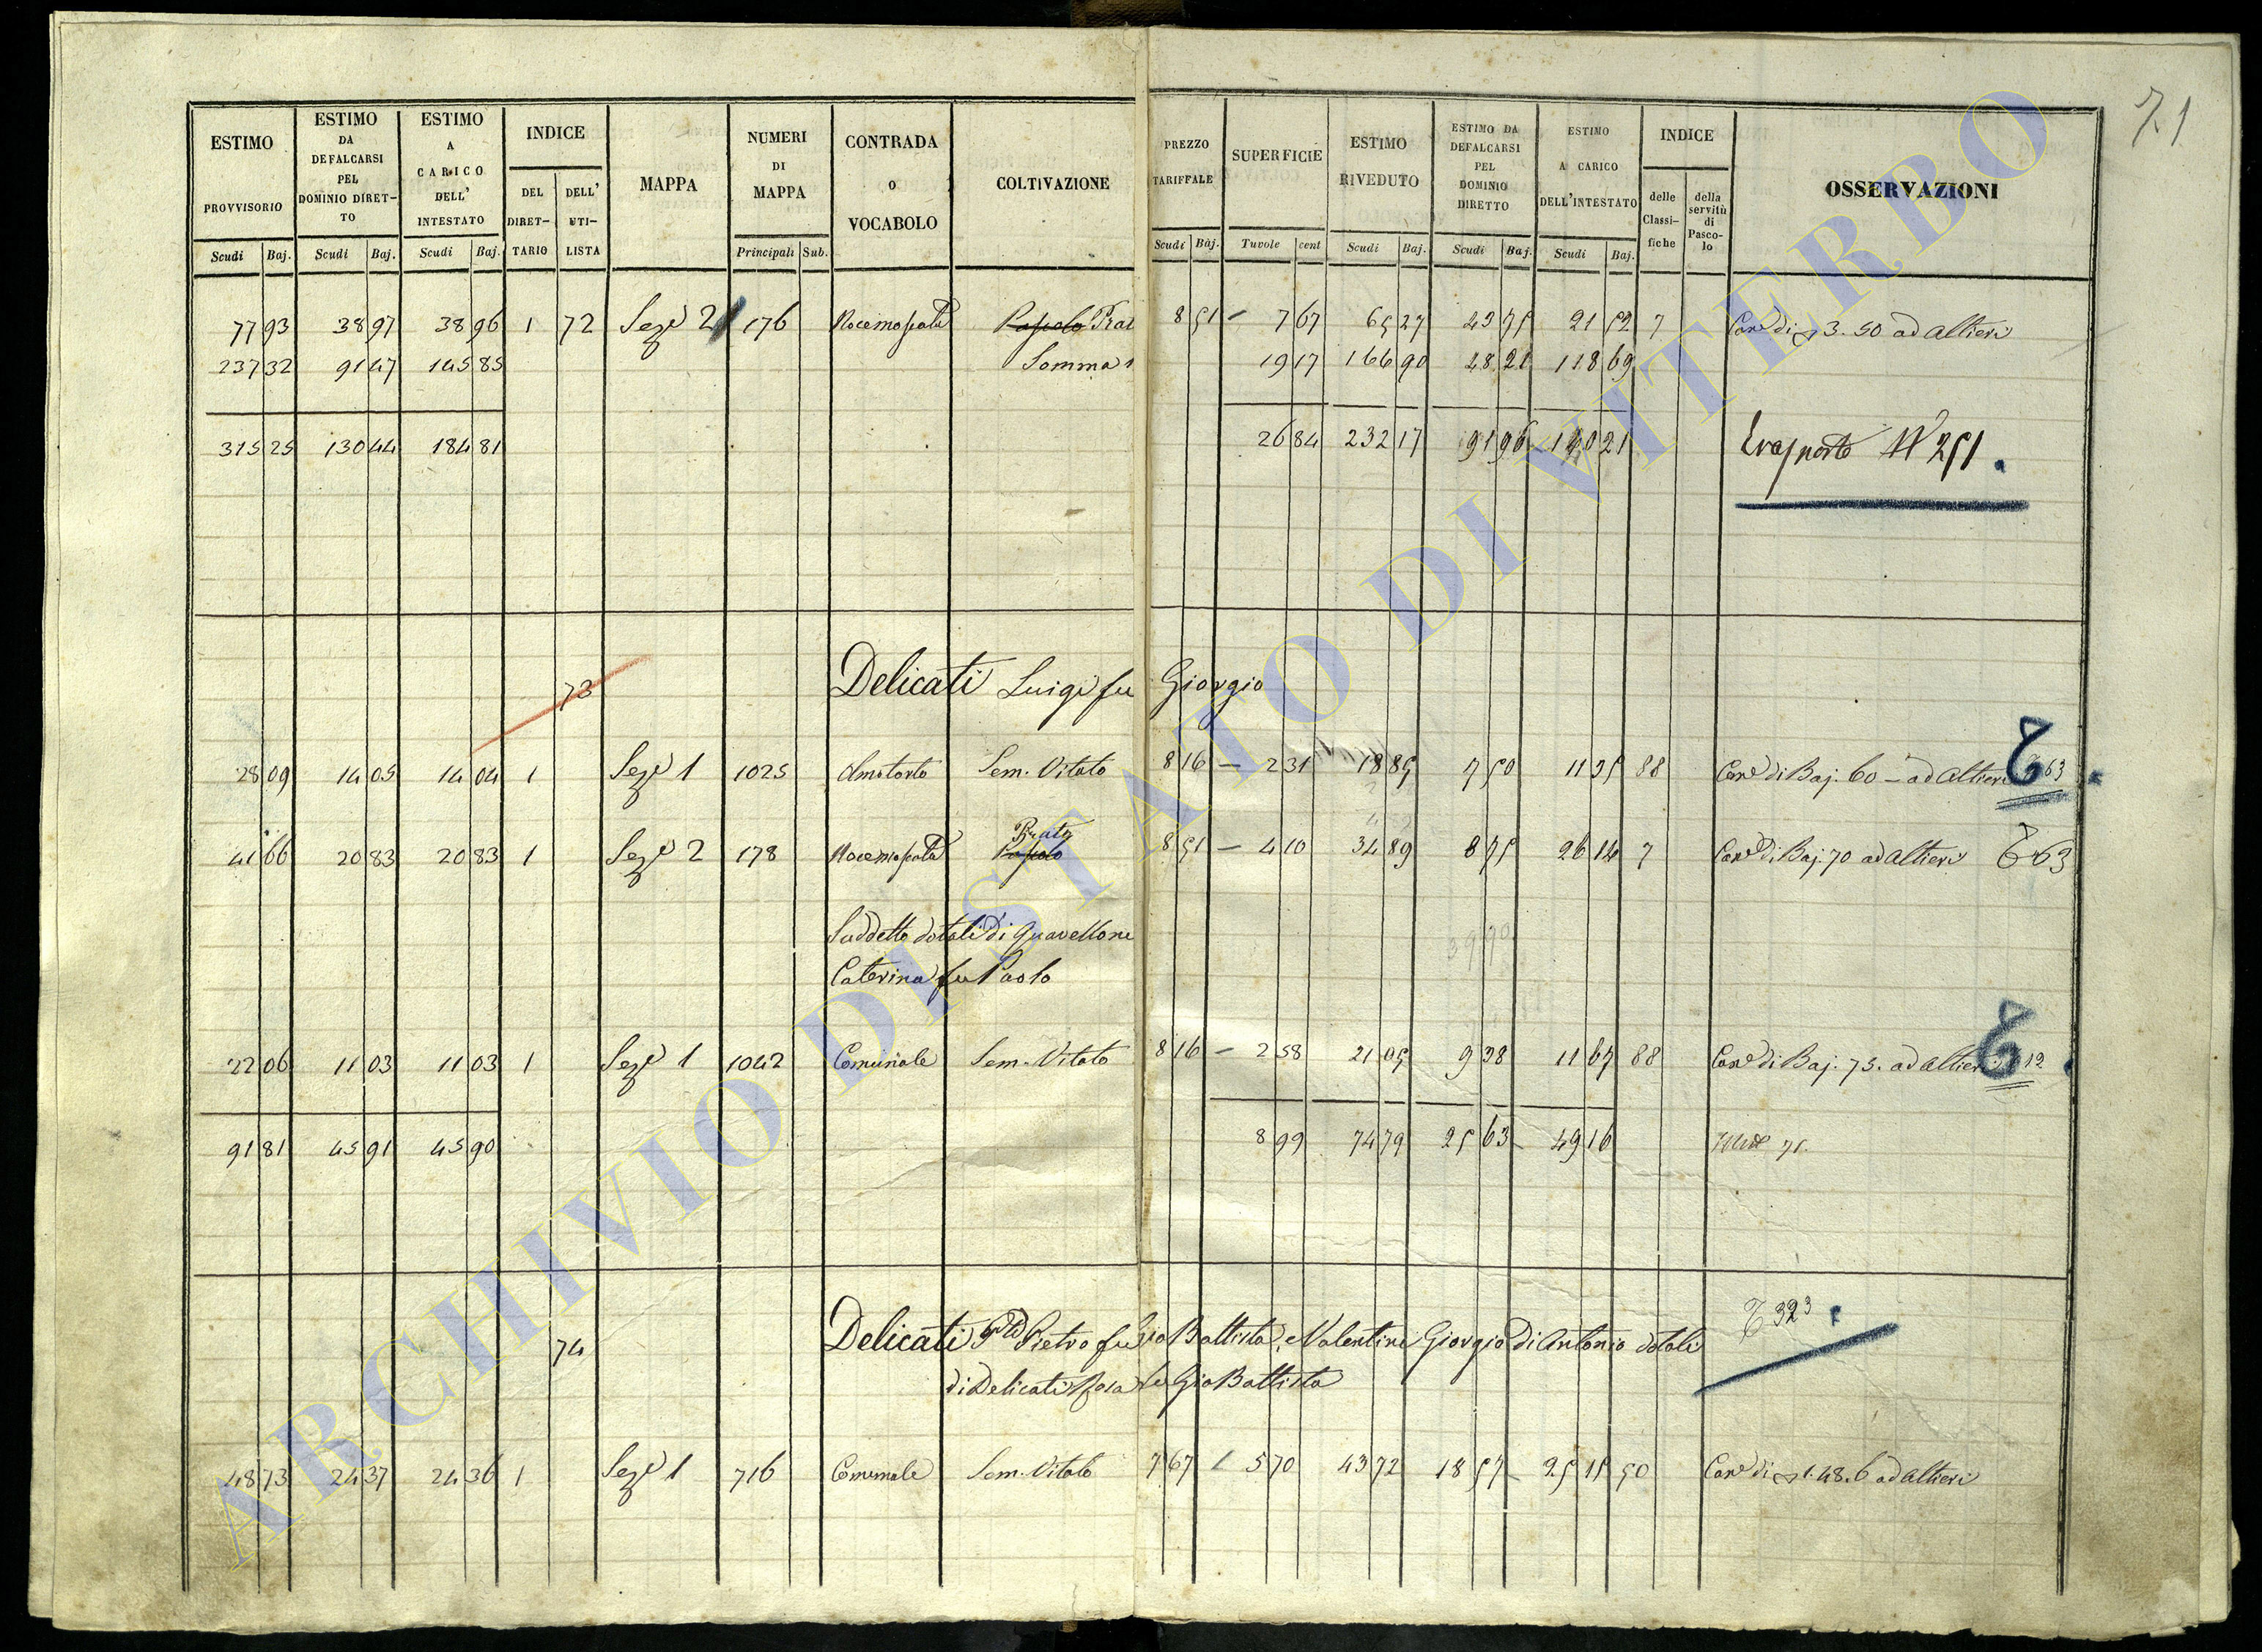 71
ESTIMO PROVVISORIO Scudi Baj.
ESTIMO DA DEFALCARSI PEL DOMINIO DIRETTO Scudi Baj.
ESTIMO A CARICO DELL' INTESTATO Scudi Baj.
INDICE DEL DIRETTARIO DELL' UTILISTA
MAPPA
NUMERI DI MAPPA Principali Sub.
CONTRADA O VOCABOLO
COLTIVAZIONE
PREZZO TARIFFALE Scudi Baj.
SUPERFICIE Tavole cent
ESTIMO RIVEDUTO Scudi Baj.
ESTIMO DA DEFALCARSI PEL DOMINIO DIRETTO Scudi Baj.
ESTIMO A CARICO DELL'INTESTATO Scudi Baj.
INDICE delle Classifiche della servitù di Pascolo
OSSERVAZIONI
77 93 38 97 38 96 1 72 Sezе 2 176 Nocemosata Pascolo Prat 8 51 – 7 67 65 27 43 75 21 52 7 Cane di 3.50 ad Altieri
237 32 91 47 145 85 Somma 19 17 166 90 48 21 118 69
315 25 130 44 184 81 26 84 232 17 91 96 140 21 Trasporto N 251
73 Delicati Luigi fu Giorgio
28 09 14 05 14 04 1 Seze 1 1025 Sem. Vitato 8 16 – 2 31 18 85 7 50 11 35 88 Cane di Baj. 60 – ad Altieri T 63
41 66 20 83 20 83 1 Seze 2 178 Nocemosata Prato Pascolo 8 51 – 4 10 34 89 8 75 26 14 7 Cane di Baj. 70 ad Altieri T 63
Suddetto dotali di Guavellone
39 90
Caterina fu Paolo
22 06 11 03 11 03 1 Seze 1 1042 Comunale Sem. Vitato 8 16 – 2 58 21 05 9 38 11 67 88 Cane di Baj. 75. ad Altieri T 12
91 81 45 91 45 90 8 99 74 79 25 63 49 16 71.
74 Delicati Pietro fu Gio Battista, e Valentini Giorgio di Antonio dotali T 323
di Delicati Rosa fu Gio Battista
48 73 24 37 24 36 1 Seze 1 716 Comunale Sem. Vitato 7 67 5 70 43 72 18 57 25 15 50 Cane di 1.48.6 ad Altieri
ARCHIVIO DI STATO DI VITERBO